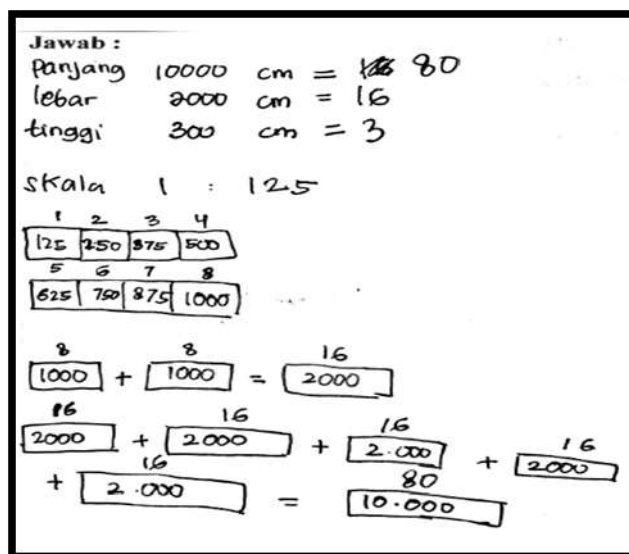 Jawab :
Panjang 10000 cm = 80
lebar 2000 cm = 16
tinggi 300 cm = 3
Skala 1 : 125
1 2 3 4
125 250 375 500
5 6 7 8
625 750 875 1000
8 8 16
1000 + 1000 = 2000
16 16 16 16
2000 + 2000 + 2.000 + 2000
16 80
+ 2.000 = 10.000